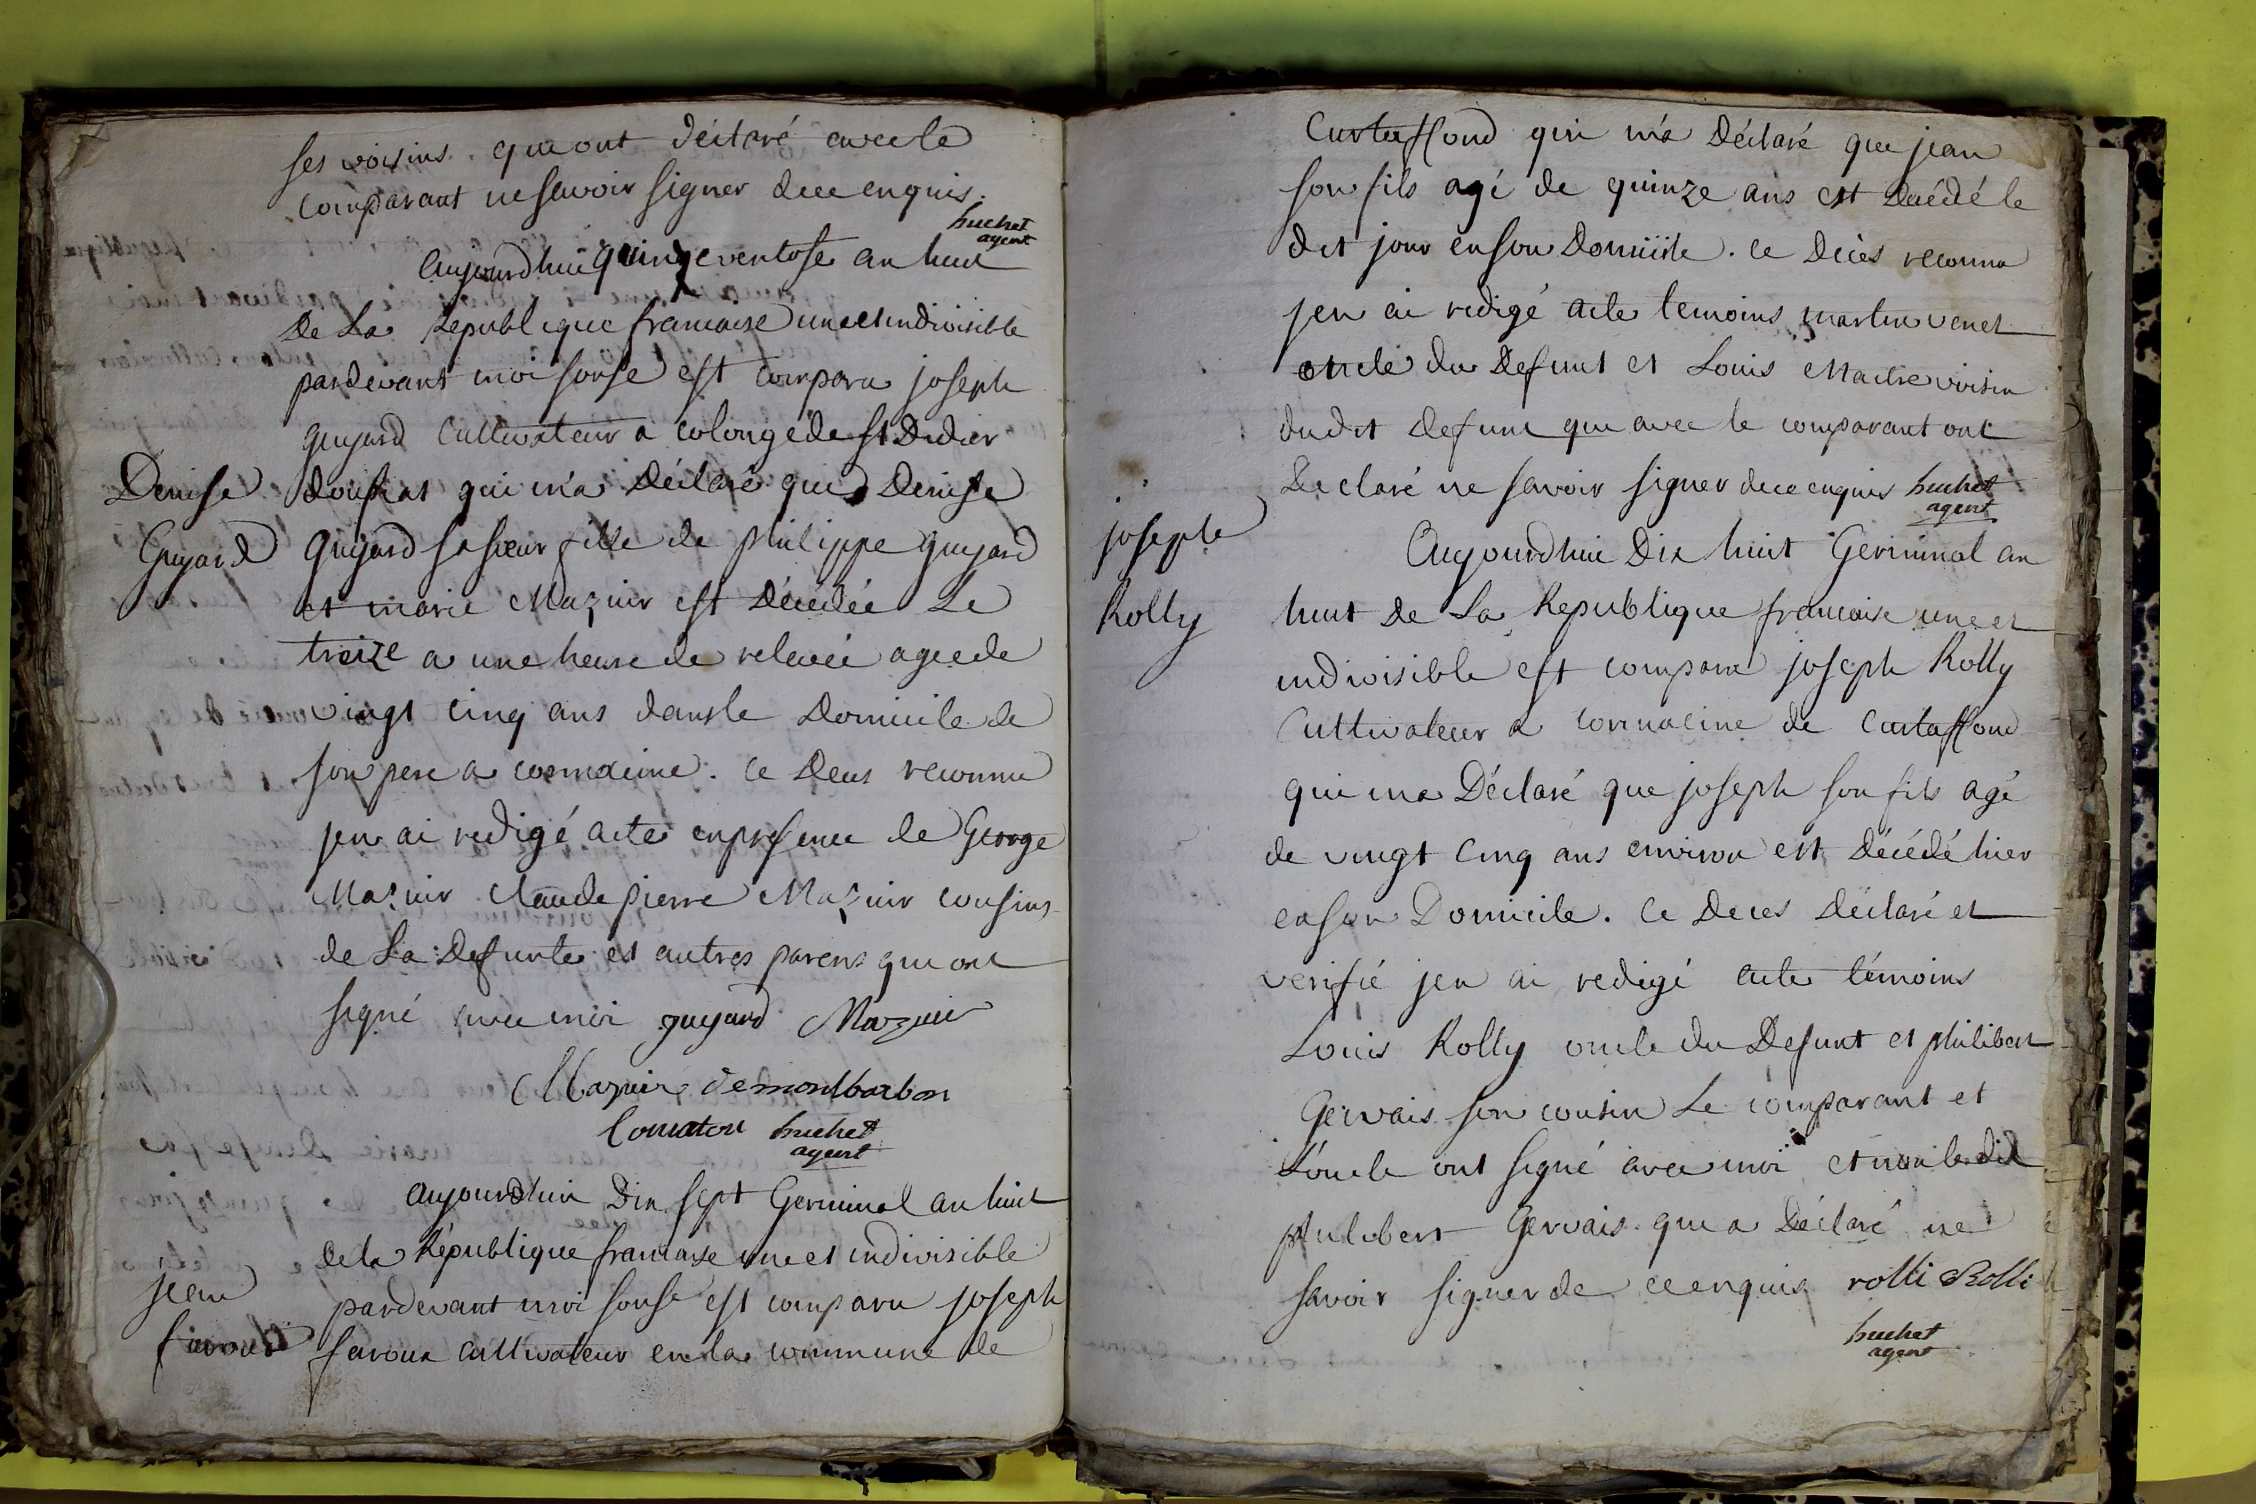 ses voisins qui ont déclaré avec le
comparant ne savoir signer de ce enquis.
huchet
agent
Aujourdhui quinze ventose an huit
De La Republique francaise une et indivisible
pardevant moi sousé est comparu joseph
guyard Cultivateur a colonge de St Didier
Denise
doussiat qui m'a Déclaré que Denise
Guyard
guyard sa sœur fille de philippe guyard
et marie Mazuir est Décédée Le
treize a une heure de relevée agée de
vingt cinq ans dans le Domicile de
son pere a cormacine. Ce Deces reconnu
jen ai redigé acte en presence de George
Mazuir Claude pierre Mazuir cousins
de La Defunte et autres parens qui ont
signé avec moi guyard Mazuir
Mazuir demontbarbon
huchet
agent
aujourdhui Dix sept Germinal an huit
de la République francaise une et indivisible
jean
pardevant moi sousé est comparu joseph
favoux cultivateur en la commune de
Curtaffond qui m'a Déclaré que jean
son fils agé de quinze ans est Décédé le
dit jour en son Domicile. Ce Décès reconnu
jen ai redigé acte temoins martin venet
oncle du Defunt et Louis Maitre voisin
du dit Defunt qui avec le comparant ont
Declaré ne savoir signer de ce enquis huchet
agent
joseph
Rolly
Aujourdhui Dix huit Germinal an
huit De La Republique francaise une et
indivisible est comparu joseph Rolly
Cultivateur a cormacine de Curtaffond
qui ma Déclaré que joseph son fils agé
de vingt cinq ans environ est Décédé hier
en son Domicile. Ce Deces Déclaré et
verifié jen ai redigé acte témoins
Louis Rolly oncle du Defunt et philibert
Gervais son cousin Le comparant et
L'oncle ont signé avec moi et non le dit
philibert Gervais qui a Déclaré ne
savoir signer de ce enquis rolli Rolli
huchet
agent